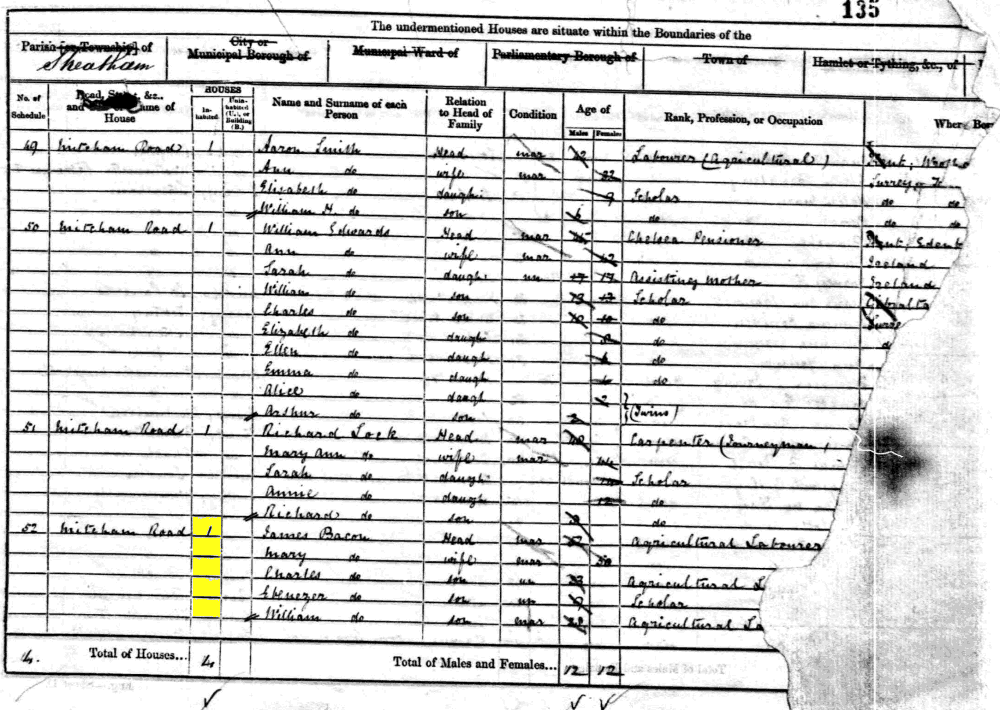 135
The undermentioned Houses are situate within the Boundaries of the
Parish [or Township] of City or Municipal Borough of Municipal Ward of Parliamentary Borough of Town of Hamlet or Tything, &c., of
No. of Schedule Road, &c., and Name of House HOUSES Inhabited Uninhabited (U.), or Building (B.) Name and Surname of each Person Relation to Head of Family Condition Age of Males Females Rank, Profession, or Occupation Where Bor
49 Mitcham Road 1 Aaron Smith Head mar Labourer (Agricultural) Kent,
Ann do wife mar 32 Surrey
Elizabeth do daugh 9 Scholar do do
William H. do son 6 do do do
50 Mitcham Road 1 William Edwards Head mar Chelsea Pensioner Kent, Edenb
Ann do wife mar 42 Ireland
Sarah do daugh un 17 17 Assisting mother Ireland
William do son 13 Scholar Gibralta
Charles do son 10 10 do Surre
Elizabeth do daugh 8 do d
Ellen do daugh 6 do
Emma do daugh do
Alice do daugh 2
Arthur do son 2 (Twins)
51 Mitcham Road 1 Richard Lock Head mar Carpenter (Journeyman)
Mary Ann do wife mar 44
Sarah do daugh Scholar
Annie do daugh 12 do
Richard do son do
52 Mitcham Road 1 James Bacon Head mar Agricultural Labourer
Mary do wife mar 50
Charles do son un 23 Agricultural L
Ebenezer do son un Scholar
William do son mar 28 Agricultural La
4. Total of Houses... 4 Total of Males and Females... 12 12